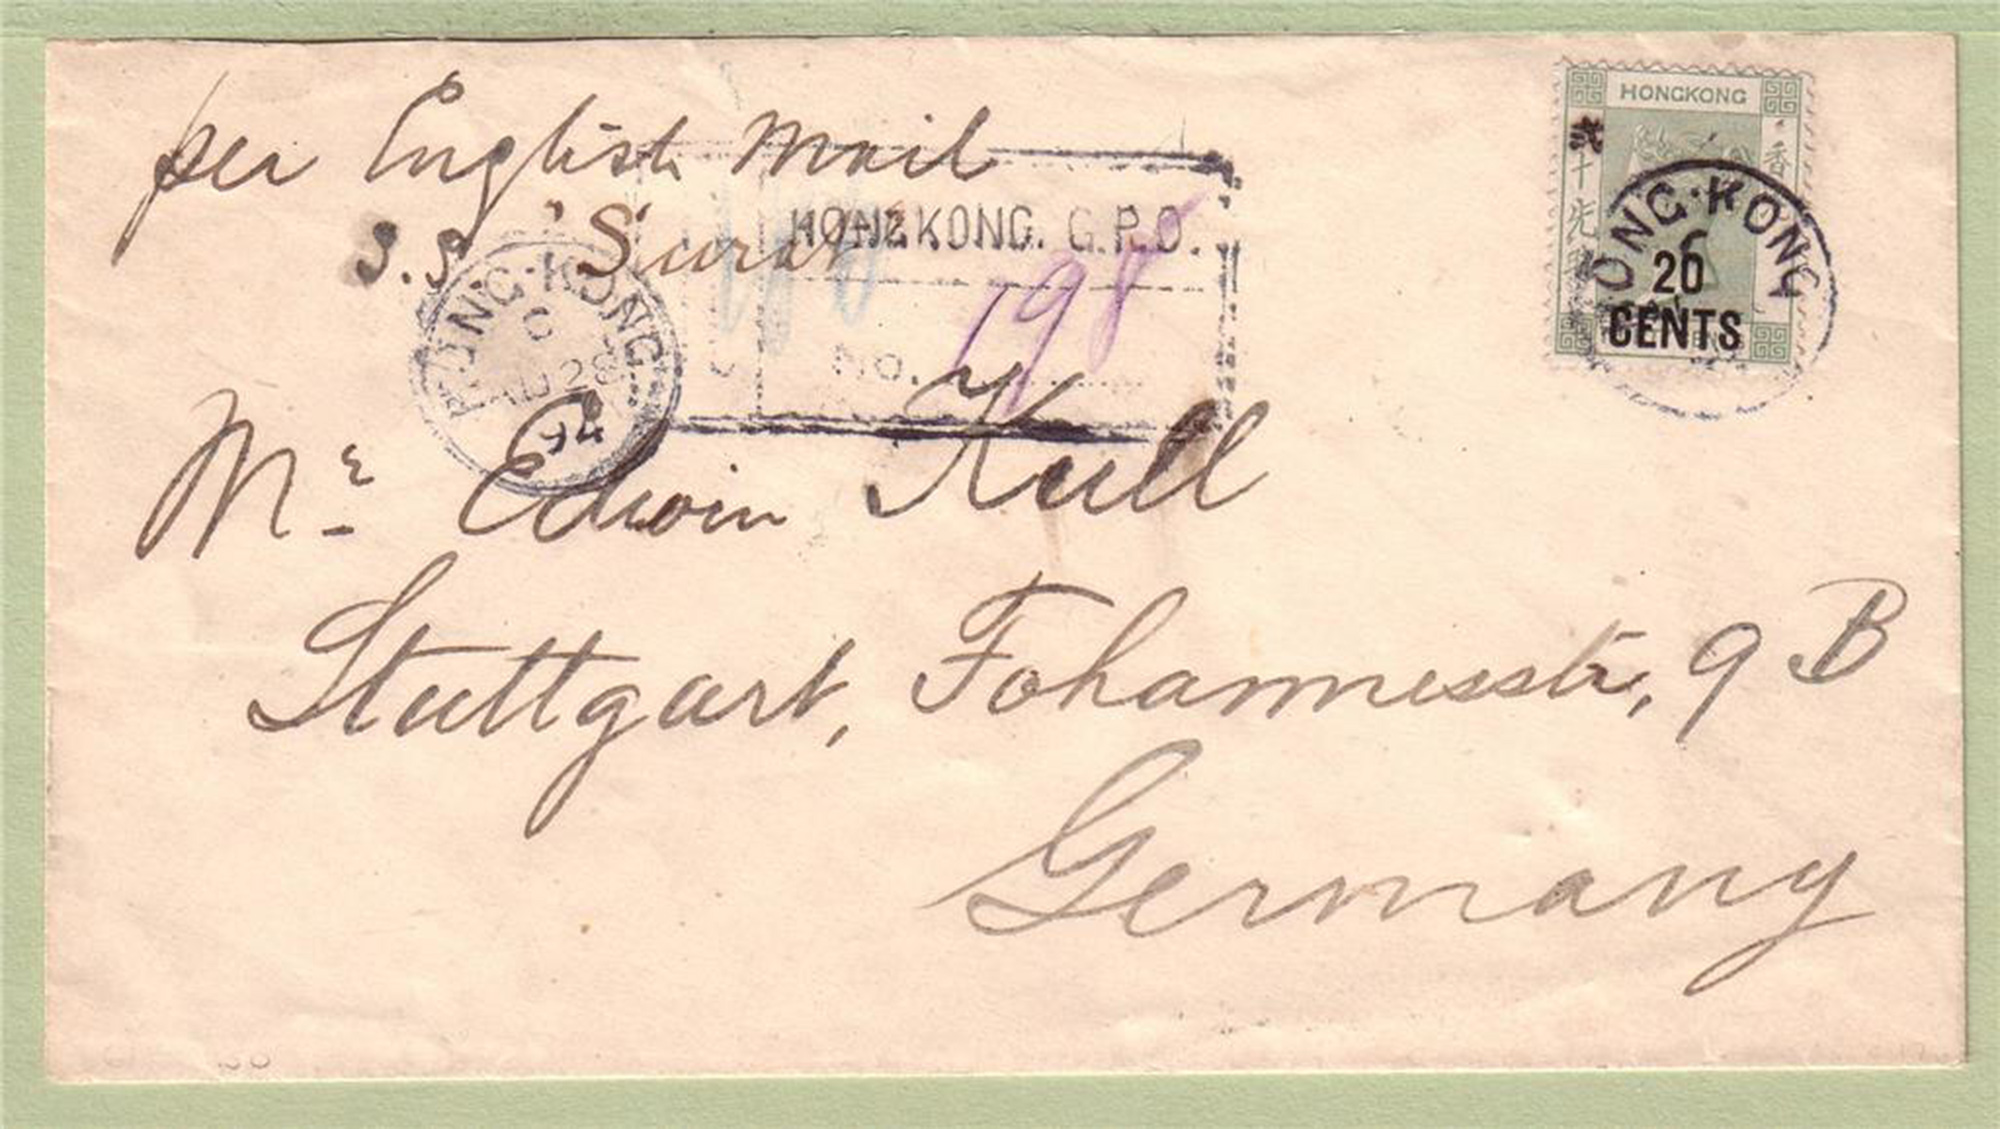 per English Mail
S.S. "Surat"
HONGKONG. G.P.O.
No. 198
HONG·KONG
C
AU 28
94
Mr. Edwin Kull
Stuttgart, Johannesstr, 9 B
Germany
HONGKONG
香
貳十先
20
CENTS
HONG·KONG